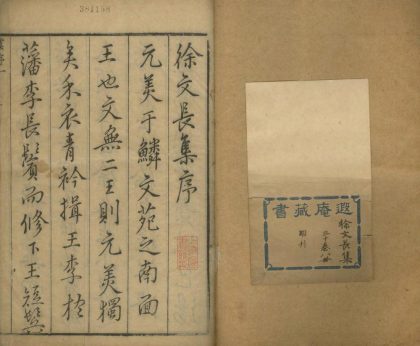 遐庵藏書
徐文長集
明刊
381158
徐文長集序
元美于鱗文苑之南面
王也文無二王則元美獨
矣余衣青衿揖王李於
藩李長鬢而修下王短鬢